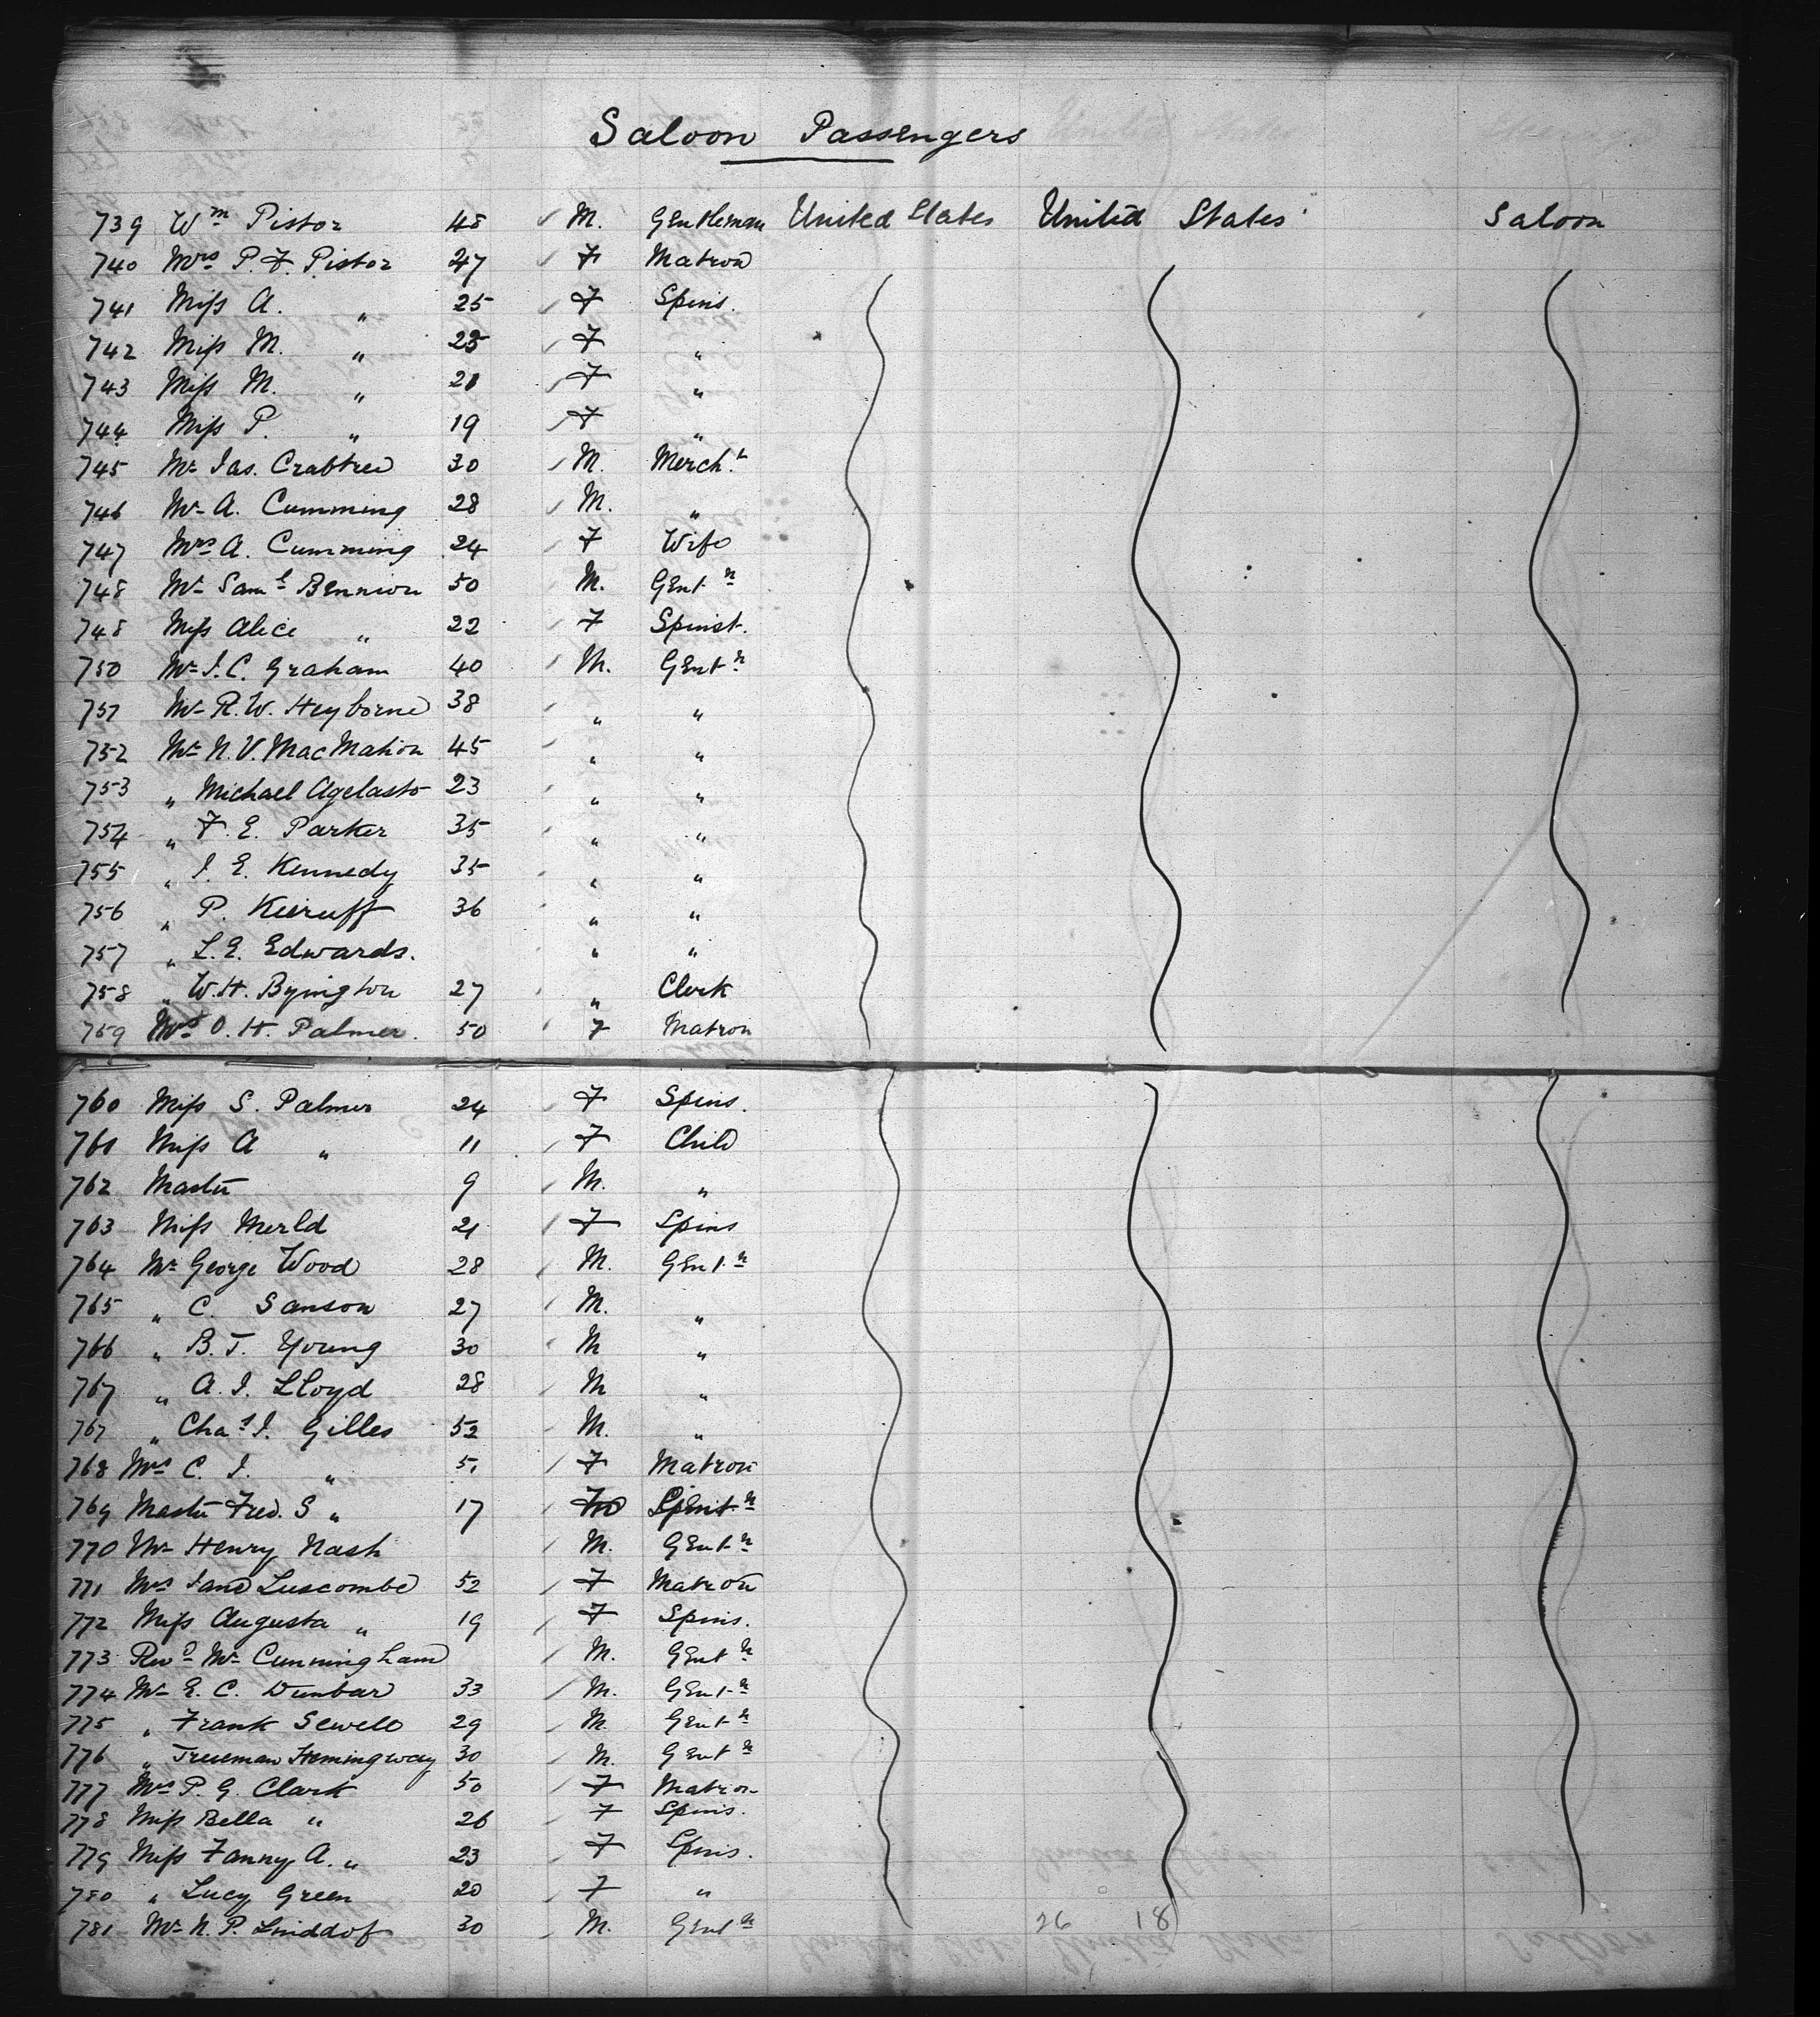 Saloon Passengers
739 Wm Pistor 48 M. Gentleman United States United States Saloon
740 Mrs P. F. Pistor 47 F Matron
741 Miss A. " 25 F Spins.
742 Miss M. " 23 F "
743 Miss M. " 21 F "
744 Miss P. " 19 F "
745 Mr Jas. Crabtree 30 M. Merch.t
746 Mr A. Cumming 28 M. "
747 Mrs A. Cumming 24 F Wife
748 Mr Saml Bennion 50 M. Gentn
748 Miss Alice " 22 F Spinst.
750 Mr J. C. Graham 40 M. Gentn
751 Mr R. W. Heyborne 38 " "
752 Mr N. V. MacMahon 45 " "
753 " Michael Agelasto 23 " "
754 " F. E. Parker 35 " "
755 " J. E. Kennedy 35 " "
756 " P. Kieruff 36 " "
757 " L. E. Edwards. " "
758 " W. H. Byington 27 " Clerk
759 Mrs O. H. Palmer. 50 F Matron
760 Miss S. Palmer 24 F Spins.
761 Miss A " 11 F Child
762 Master 9 M. "
763 Miss Merld 21 F Spins
764 Mr George Wood 28 M. Gent.n
765 " C. Sanson 27 M. "
766 " B. T. Young 30 M "
767 " A. J. Lloyd 28 M "
767 " Chas J. Gilles 52 M. "
768 Mrs C. J. " 51 F Matron
769 Master Fred. S " 17
770 Mr Henry Nash M. Gentn
771 Mrs Jane Luscombe 52 F Matron
772 Miss Augusta " 19 F Spins.
773 Revd Mr Cunningham M. Gentn
774 Mr E. C. Dunbar 33 M. Gentn
775 " Frank Sewell 29 M. Gentn
776 " Trueman Hemingway 30 M. Gentn
777 Mrs P. G. Clark 50 F Matron
778 Miss Bella " 26 F Spins.
779 Miss Fanny A. " 23 F Spins.
780 " Lucy Green 20 F "
781 Mr N. P. Linddof 30 M. Gentn 26 18